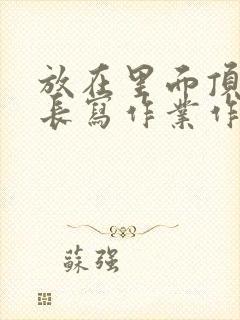 放在里而頂
長寫作業作
蘇强